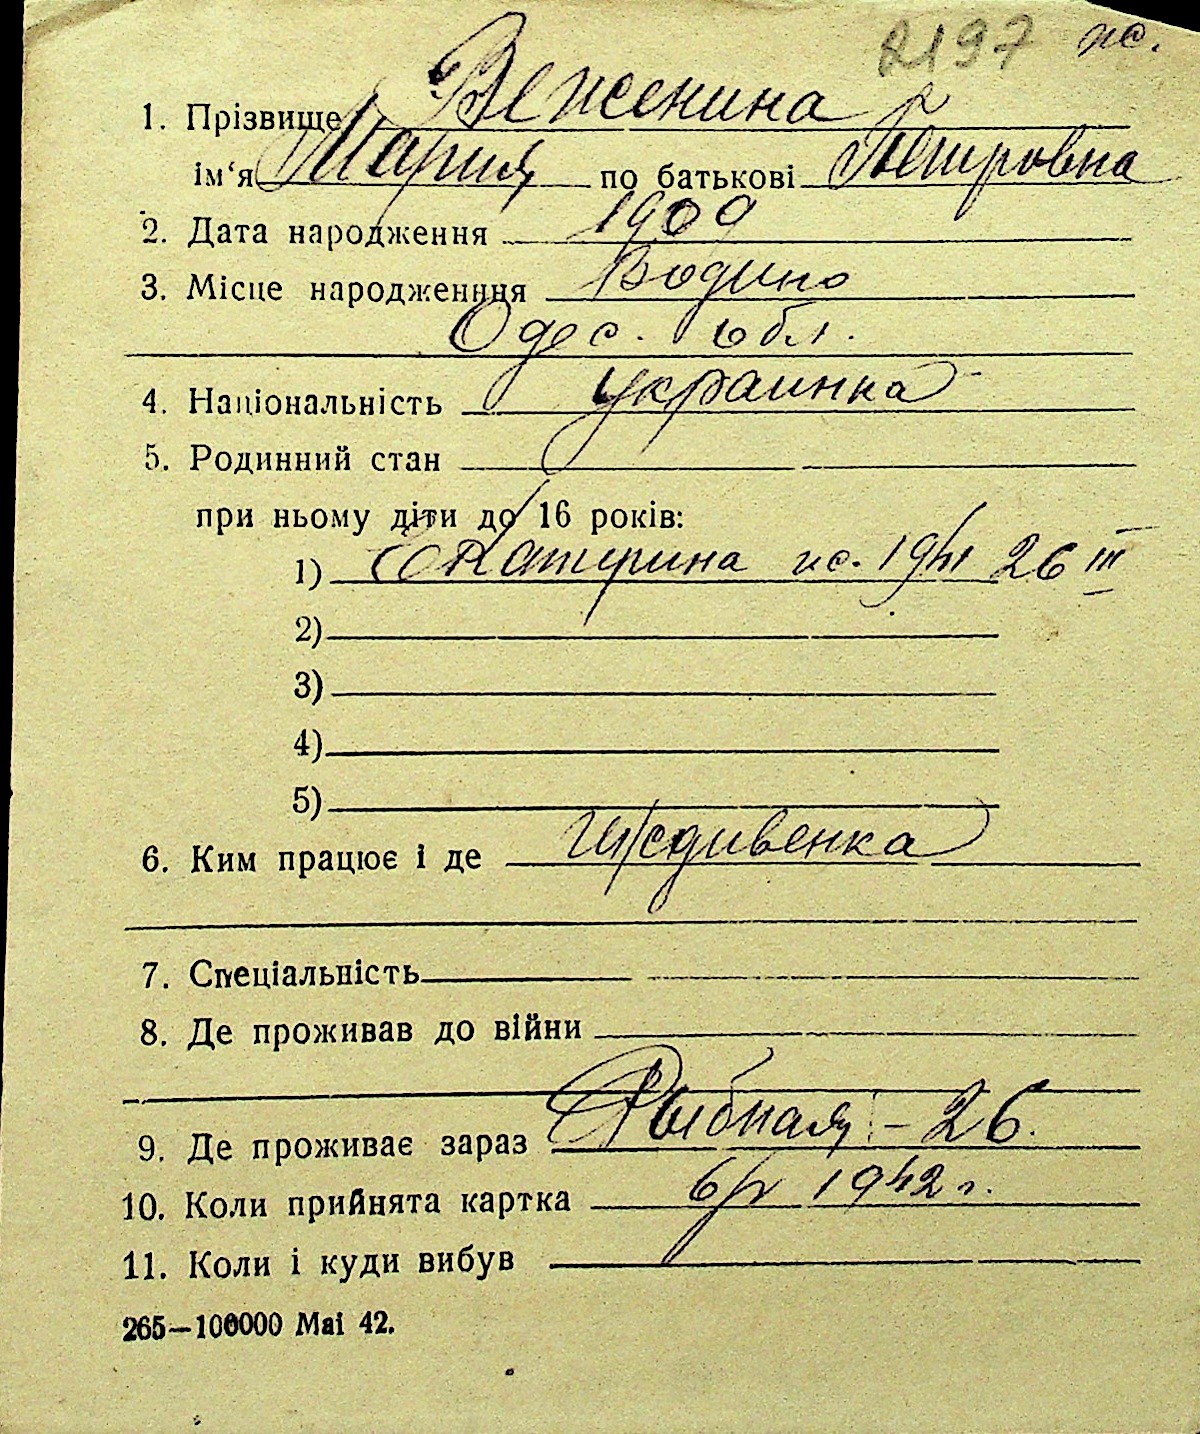 2197 ж.
1. Прізвище Веженина
ім‘я Мария по батькові Петровна
2. Дата народження 1909
3. Місце народженння Бодино
Одес. обл.
4. Національність украинка
5. Родинний стан
при ньому діти до 16 років:
1) Екатерина ж. 1941 26 III
2)
3)
4)
5)
6. Ким працює і де иждивенка
7. Спеціальність
8. Де проживав до війни
9. Де проживає зараз Рыбная - 26.
10. Коли прийнята картка 6/V 1942 г.
11. Коли і куди вибув
265—100000 Mai 42.